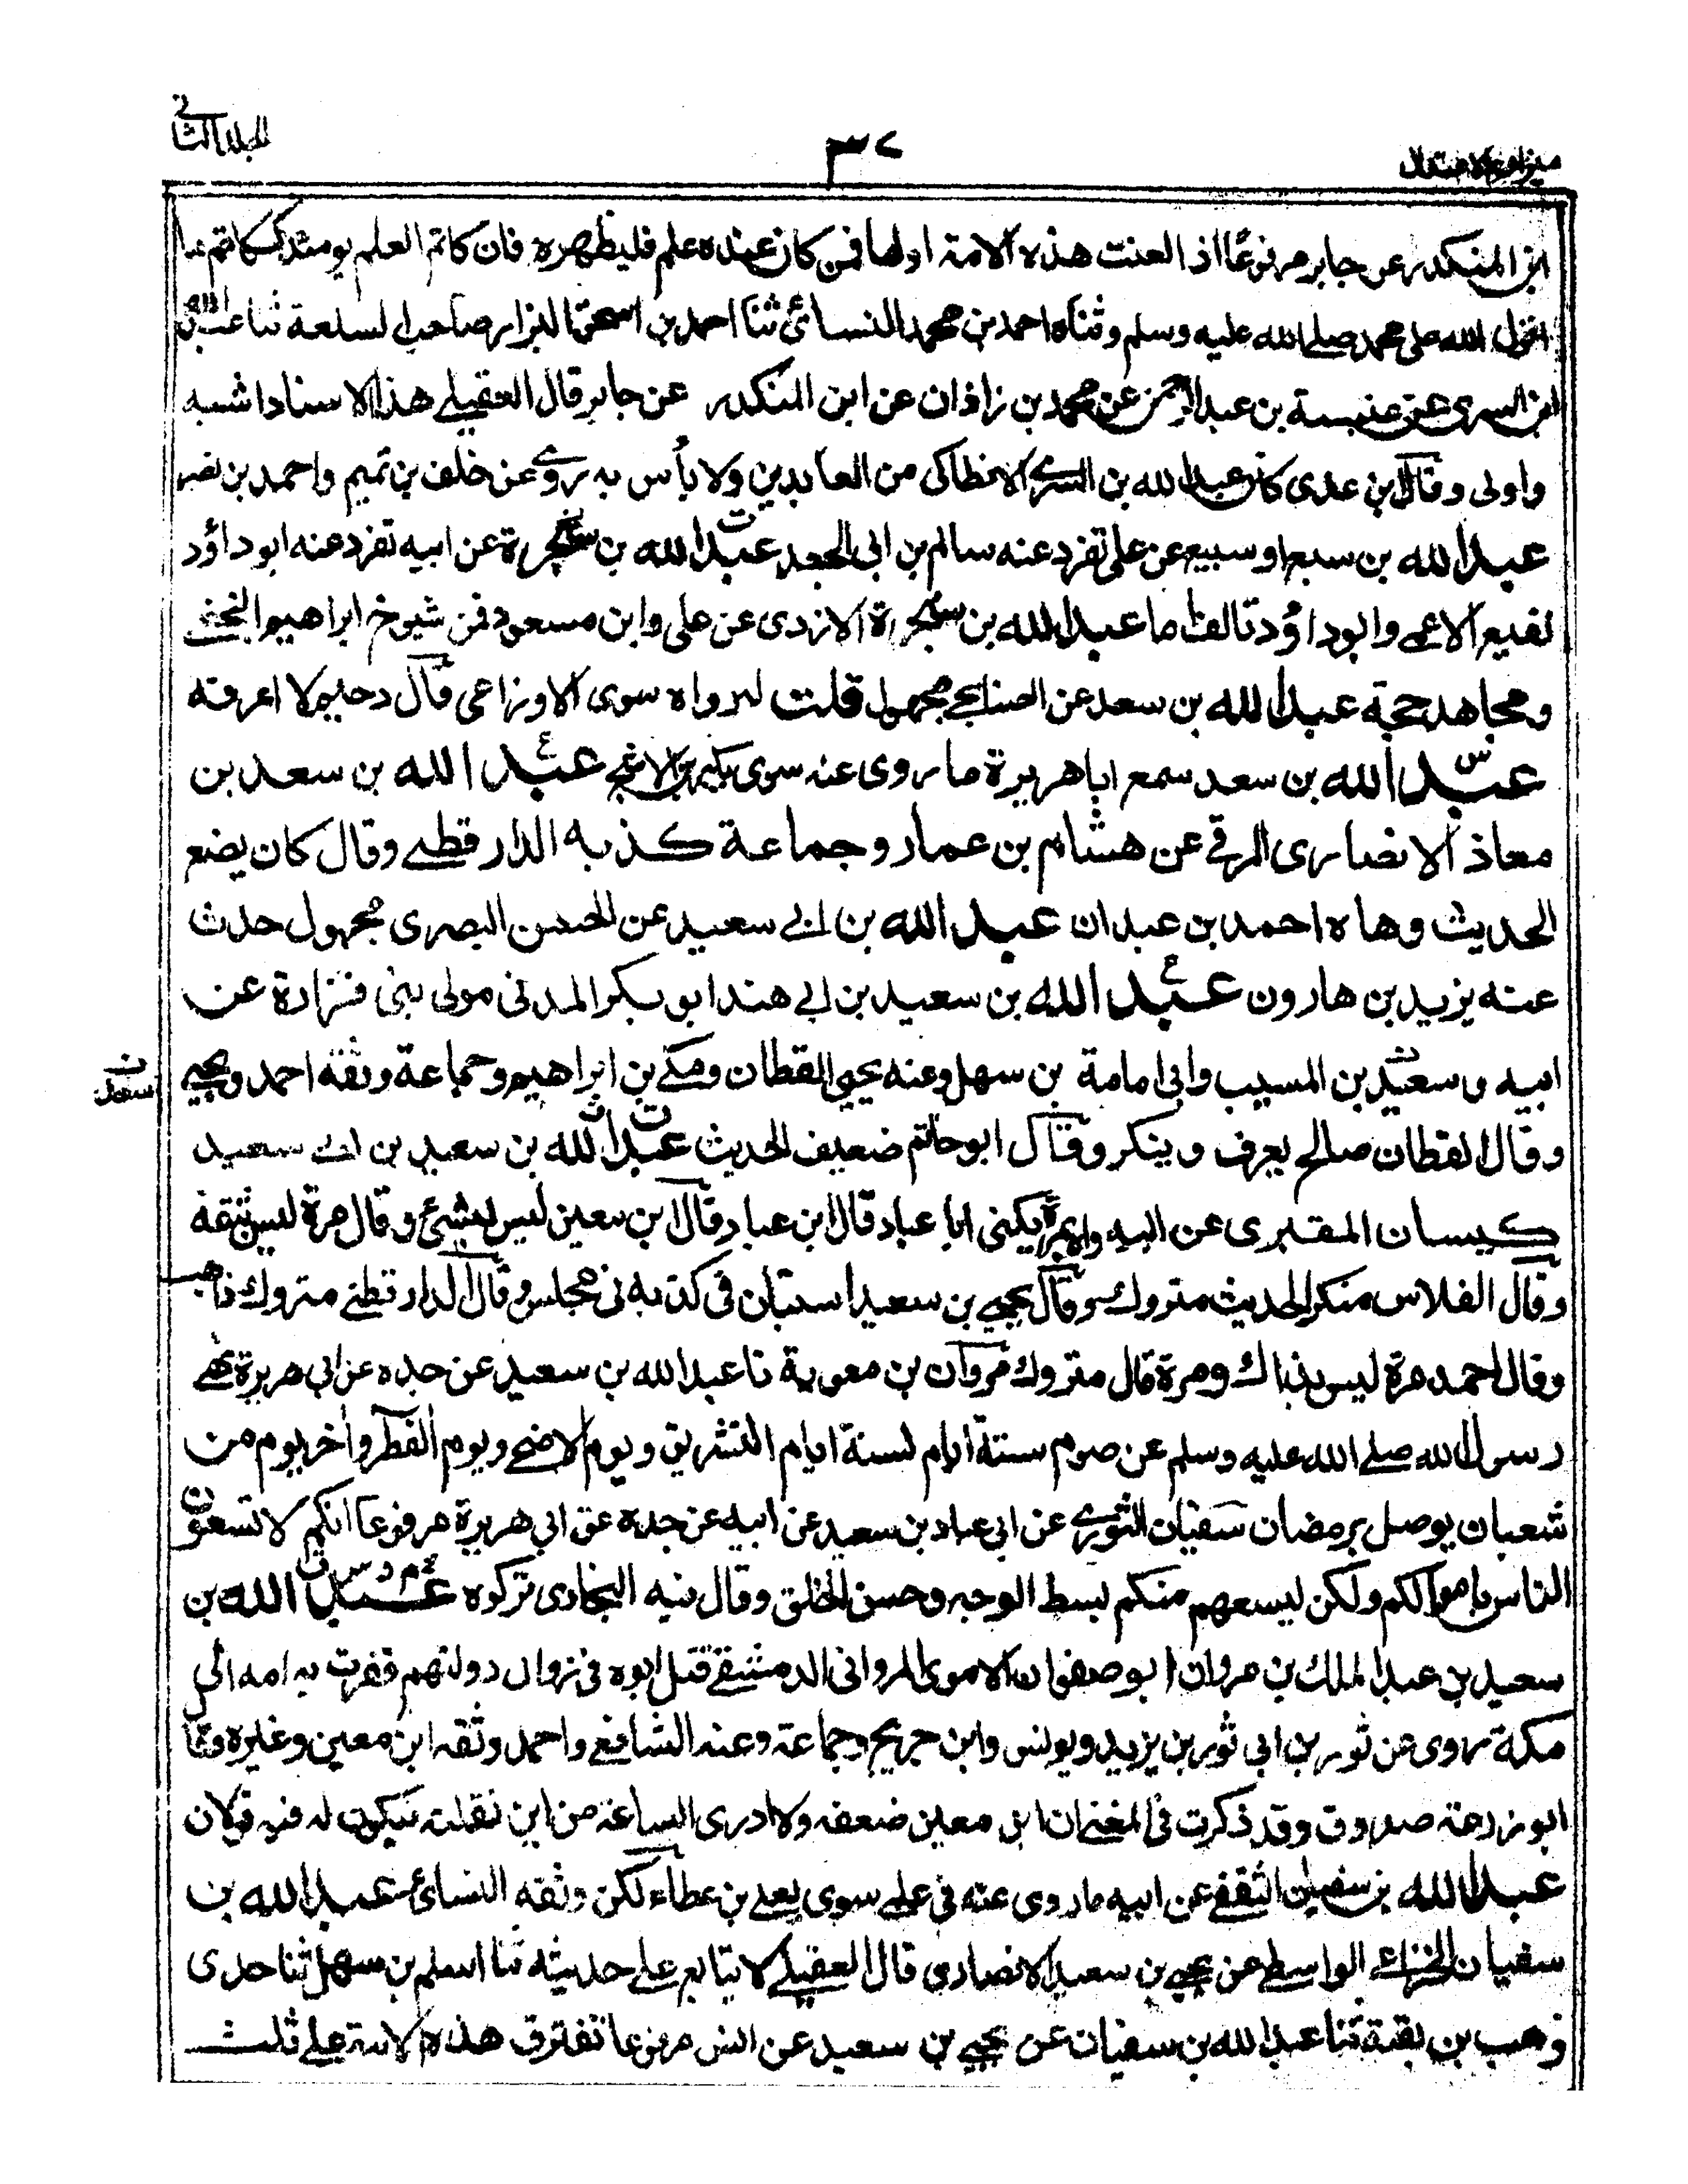 ميزان الاعتدال
٣٧
المجلد الثاني
ابن المنكدر عن جابر مرفوعًا اذ العنت هذه الامة اولها فمن كان عنده علم فليظهره فان كاتم العلم يومئذ ككاتم ما
انزل الله على محمد صلى الله عليه وسلم وثناه احمد بن محمد النسائي ثنا احمد بن اسحق البزار صاحب السلعة ثنا عبد الله
ابن السرى عن عنبسة بن عبد الرحمن عن محمد بن زاذان عن ابن المنكدر عن جابر قال العقيلي هذا الاسناد اشبه
واولى وقال ابن عدى كان عبد الله بن السرى الانطاكى من العابدين ولا بأس به روى عن خلف بن تميم واحمد بن نصر
عبد الله بن سبع او سبيع عن على تفرد عنه سالم بن ابى الجعد عبد الله بن سخبرة عن ابيه تفرد عنه ابو داؤد
نفيع الاعمى وابو داؤد تالف اما عبد الله بن سخبرة الازدى عن على وابن مسعود فمن شيوخ ابراهيم النخعى
ومجاهد حجة عبد الله بن سعد عن الصنابحي مجهول قلت لم رواه سوى الاوزاعى قال دحيم لا اعرفه
عبد الله بن سعد سمع ابا هريرة ما روى عنه سوى بكير بن الاشج عبد الله بن سعد بن
معاذ الانصارى الرقى عن هشام بن عمار وجماعة كذبه الدارقطنى وقال كان يضع
الحديث وهاه احمد بن عبدان عبد الله بن ابى سعيد عن الحسن البصرى مجهول حدث
عنه يزيد بن هارون عبد الله بن سعيد بن ابى هند ابو بكر المدنى مولى بنى فزارة عن
ابيه و سعيد بن المسيب وابى امامة بن سهل وعنه يحيى القطان ومكى بن ابراهيم وجماعة وثقه احمد ويحيى
وقال القطان صالح يعرف وينكر وقال ابو حاتم ضعيف الحديث عبد الله بن سعيد بن ابى سعيد
كيسان المقبرى عن ابيه يكنى ابا عباد قال ابن عباد قال ابن معين ليس بشئ وقال مرة ليس بثقة
وقال الفلاس منكر الحديث متروك وقال يحيى بن سعيد استبان فى كذبه فى مجلس وقال الدارقطنى متروك ذاهب
وقال احمد مرة ليس بذاك ومرة قال متروك مروان بن معوية نا عبد الله بن سعيد عن جده عن ابى هريرة نهى
رسول الله صلى الله عليه وسلم عن صوم ستة ايام لسنة ايام التشريق ويوم الاضحى ويوم الفطر وآخر يوم من
شعبان يوصل برمضان سفيان الثورى عن ابى عباد بن سعيد عن ابيه عن جده عن ابي هريرة مرفوعا انكم لا تسعون
الناس باموالكم ولكن ليسعهم منكم بسط الوجه وحسن الخلق وقال فيه البخارى تركوه عبد الله بن
سعيد بن عبد الملك بن مروان ابو صفوان الاموى المروانى الدمشقى قتل ابوه فى زوال دولتهم ففرت به امه الى
مكة روى عن ثور بن ابى ثور بن يزيد ويونس وابن جريج وجماعة وعنه الشافعى واحمد وثقه ابن معين وغيره وقال
ابو زرعة صدوق وقد ذكرت فى المغنى ان ابن معين ضعفه ولا ادرى الساعة من اين نقلته فيكون له فيه قولان
عبد الله بن سفيان الثقفى عن ابيه ما روى عنه فى علمى سوى يعلى بن عطاء لكن وثقه النسائى عبد الله بن
سفيان الخزاعى الواسطى عن يحيى بن سعيد الانصارى قال العقيلى لا يتابع على حديثه ثنا اسلم بن سهل ثنا جدى
وهب بن بقية ثنا عبد الله بن سفيان عن يحيى بن سعيد عن انس مرفوعا تفترق هذه الامة على ثلث